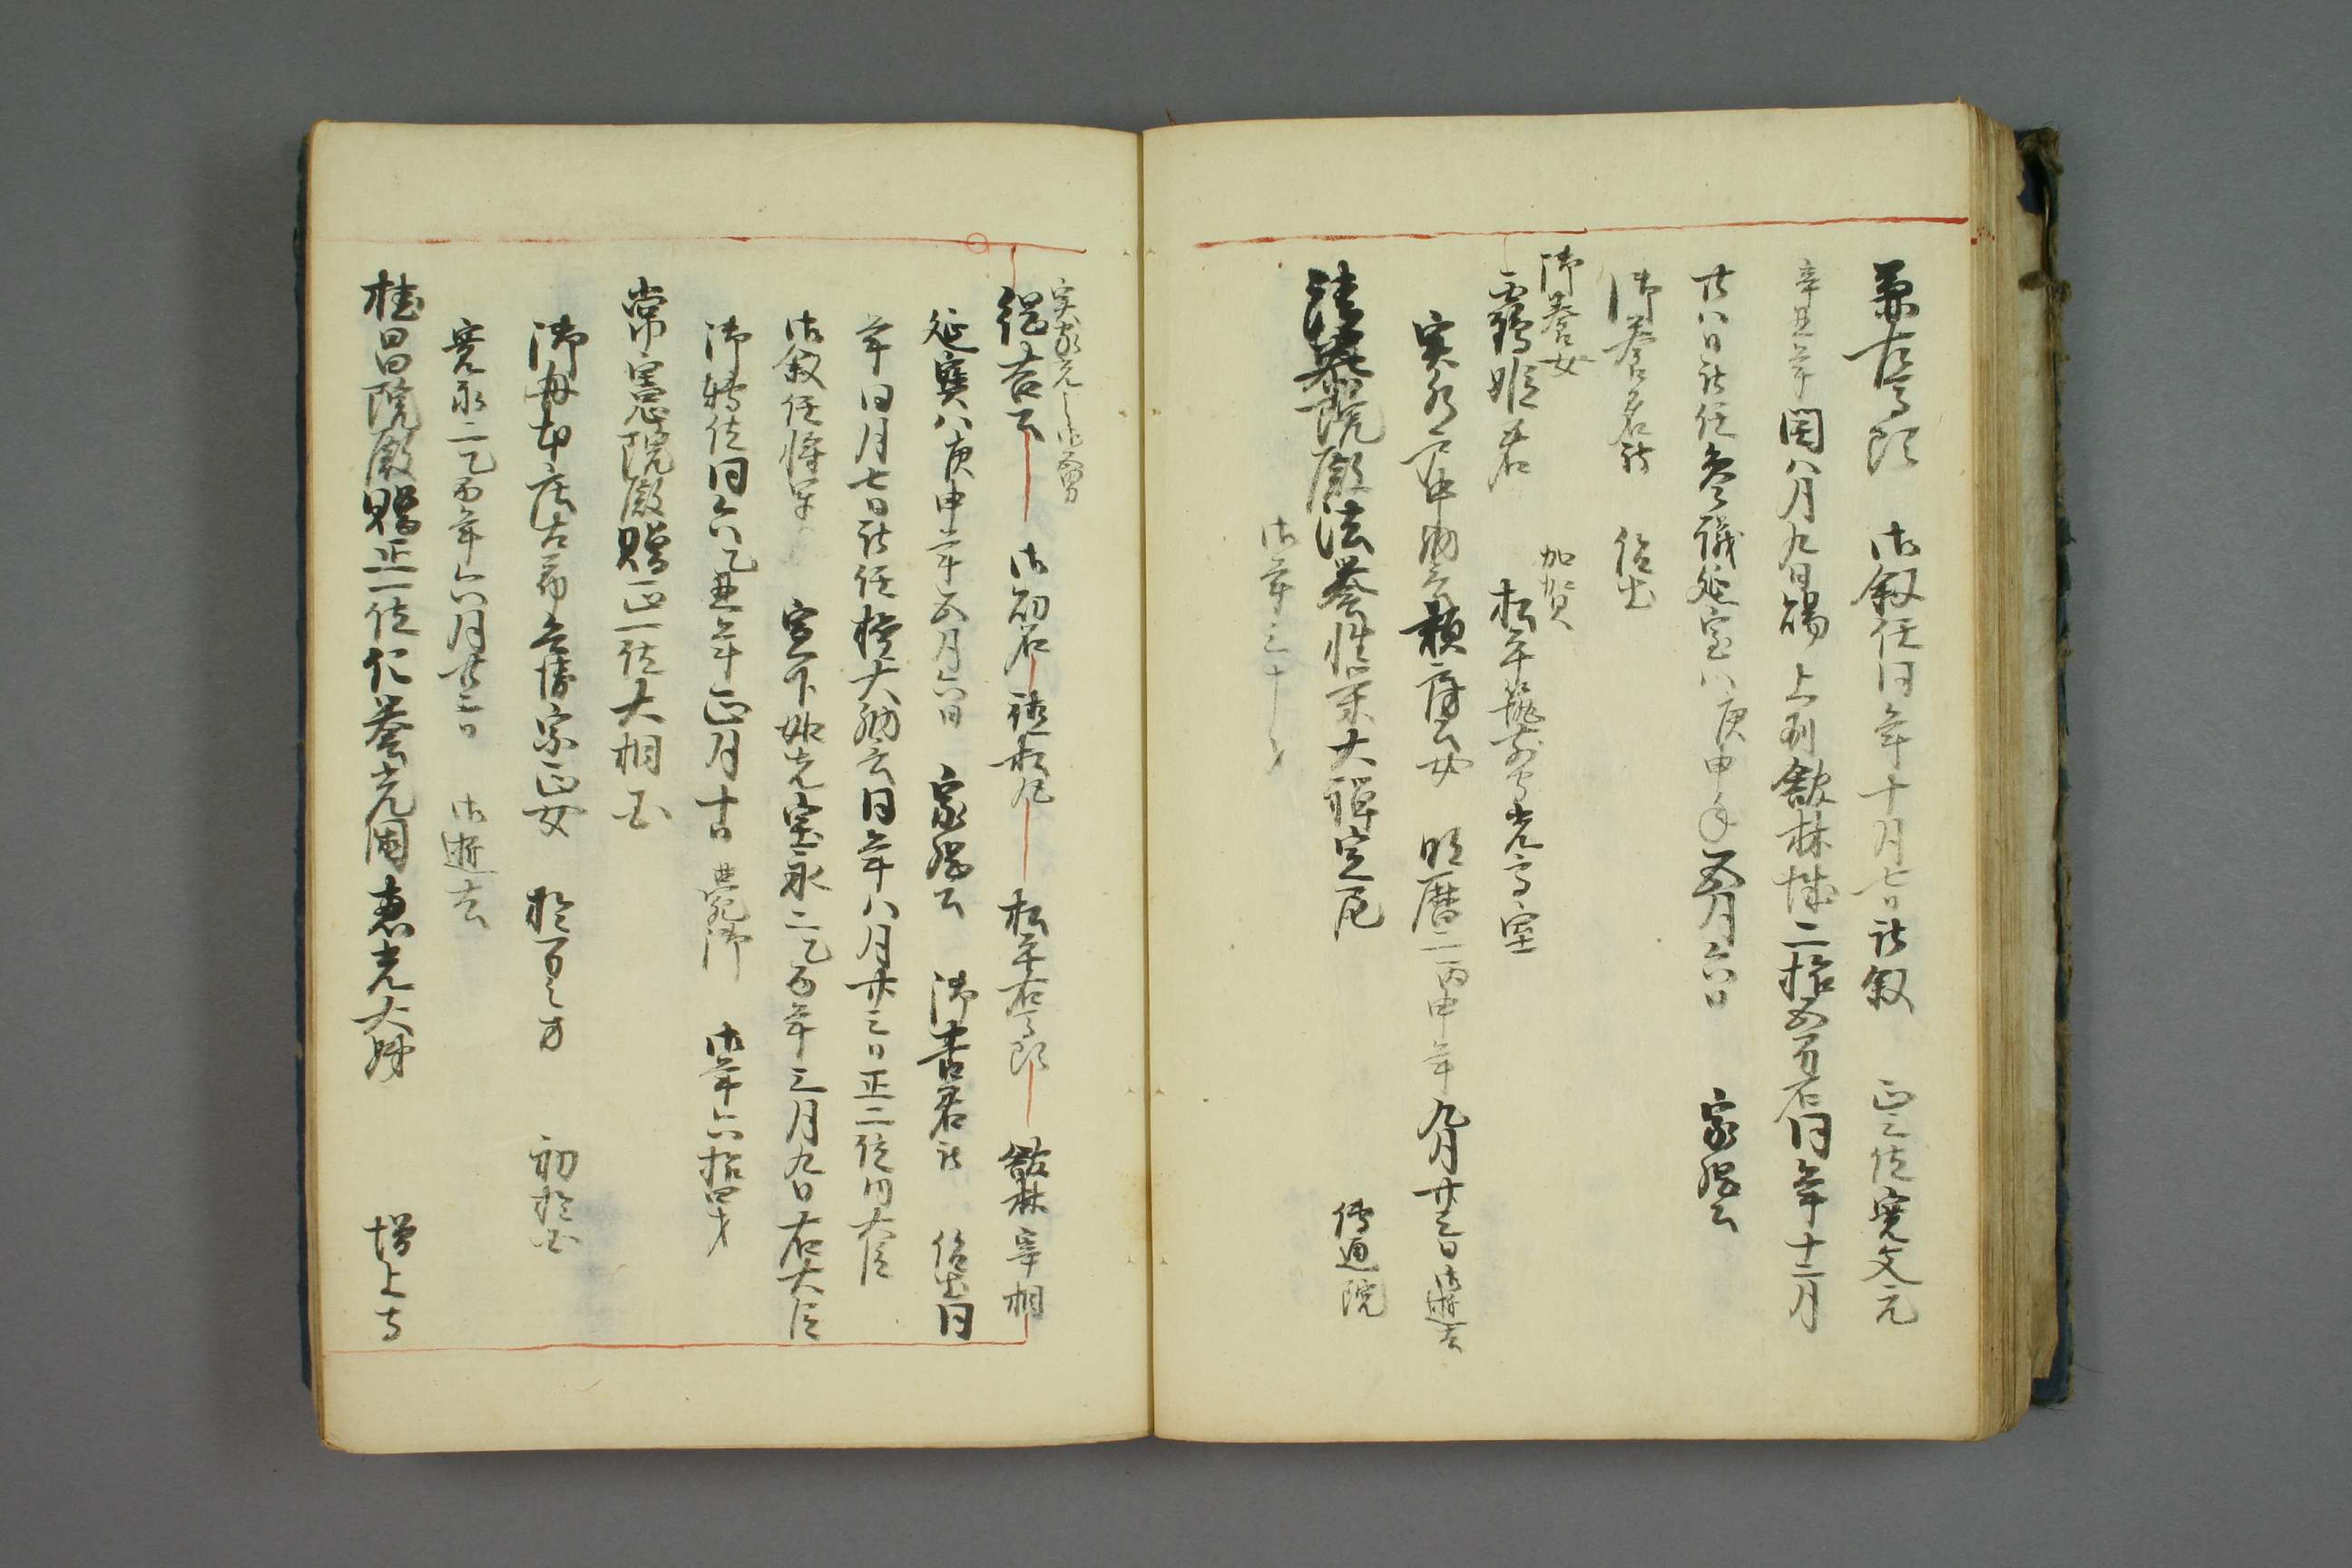 兼右馬頭　御叙任同年十月七日被叙　正三位寛文元
辛丑年閏八月九日賜　上州舘林城二拾五万石同年十二月
廿八日被任参議延宝八庚申年五月六日　家綱公
御養君被　仰出
御養女
靏姫君　加賀　松平筑前守光高室
実水戸中納言頼房公女　明暦二丙申年九月廿三日御逝去
清泰院殿法誉性栄大禅定尼　傳通院
御年三十才
実家光公御男
綱吉公　御初名徳松丸　松平右馬頭　舘林宰相
延寳八庚申年五月六日　家綱公　御養君被　仰出同
年同月七日被任権大納言同年八月廿三日正二位内大臣
御叙任将軍　宣下如先宝永二乙酉年三月九日右大臣
御轉任同六己丑年正月十日　薨御　御年六拾四才
常憲院殿贈正一位大相国
御母本庄太郎兵衛宗正女　於玉之方　初於
寛永二乙酉年六月廿二日　御逝去
桂昌院殿贈正一位仁誉光国恵光大姉　増上寺